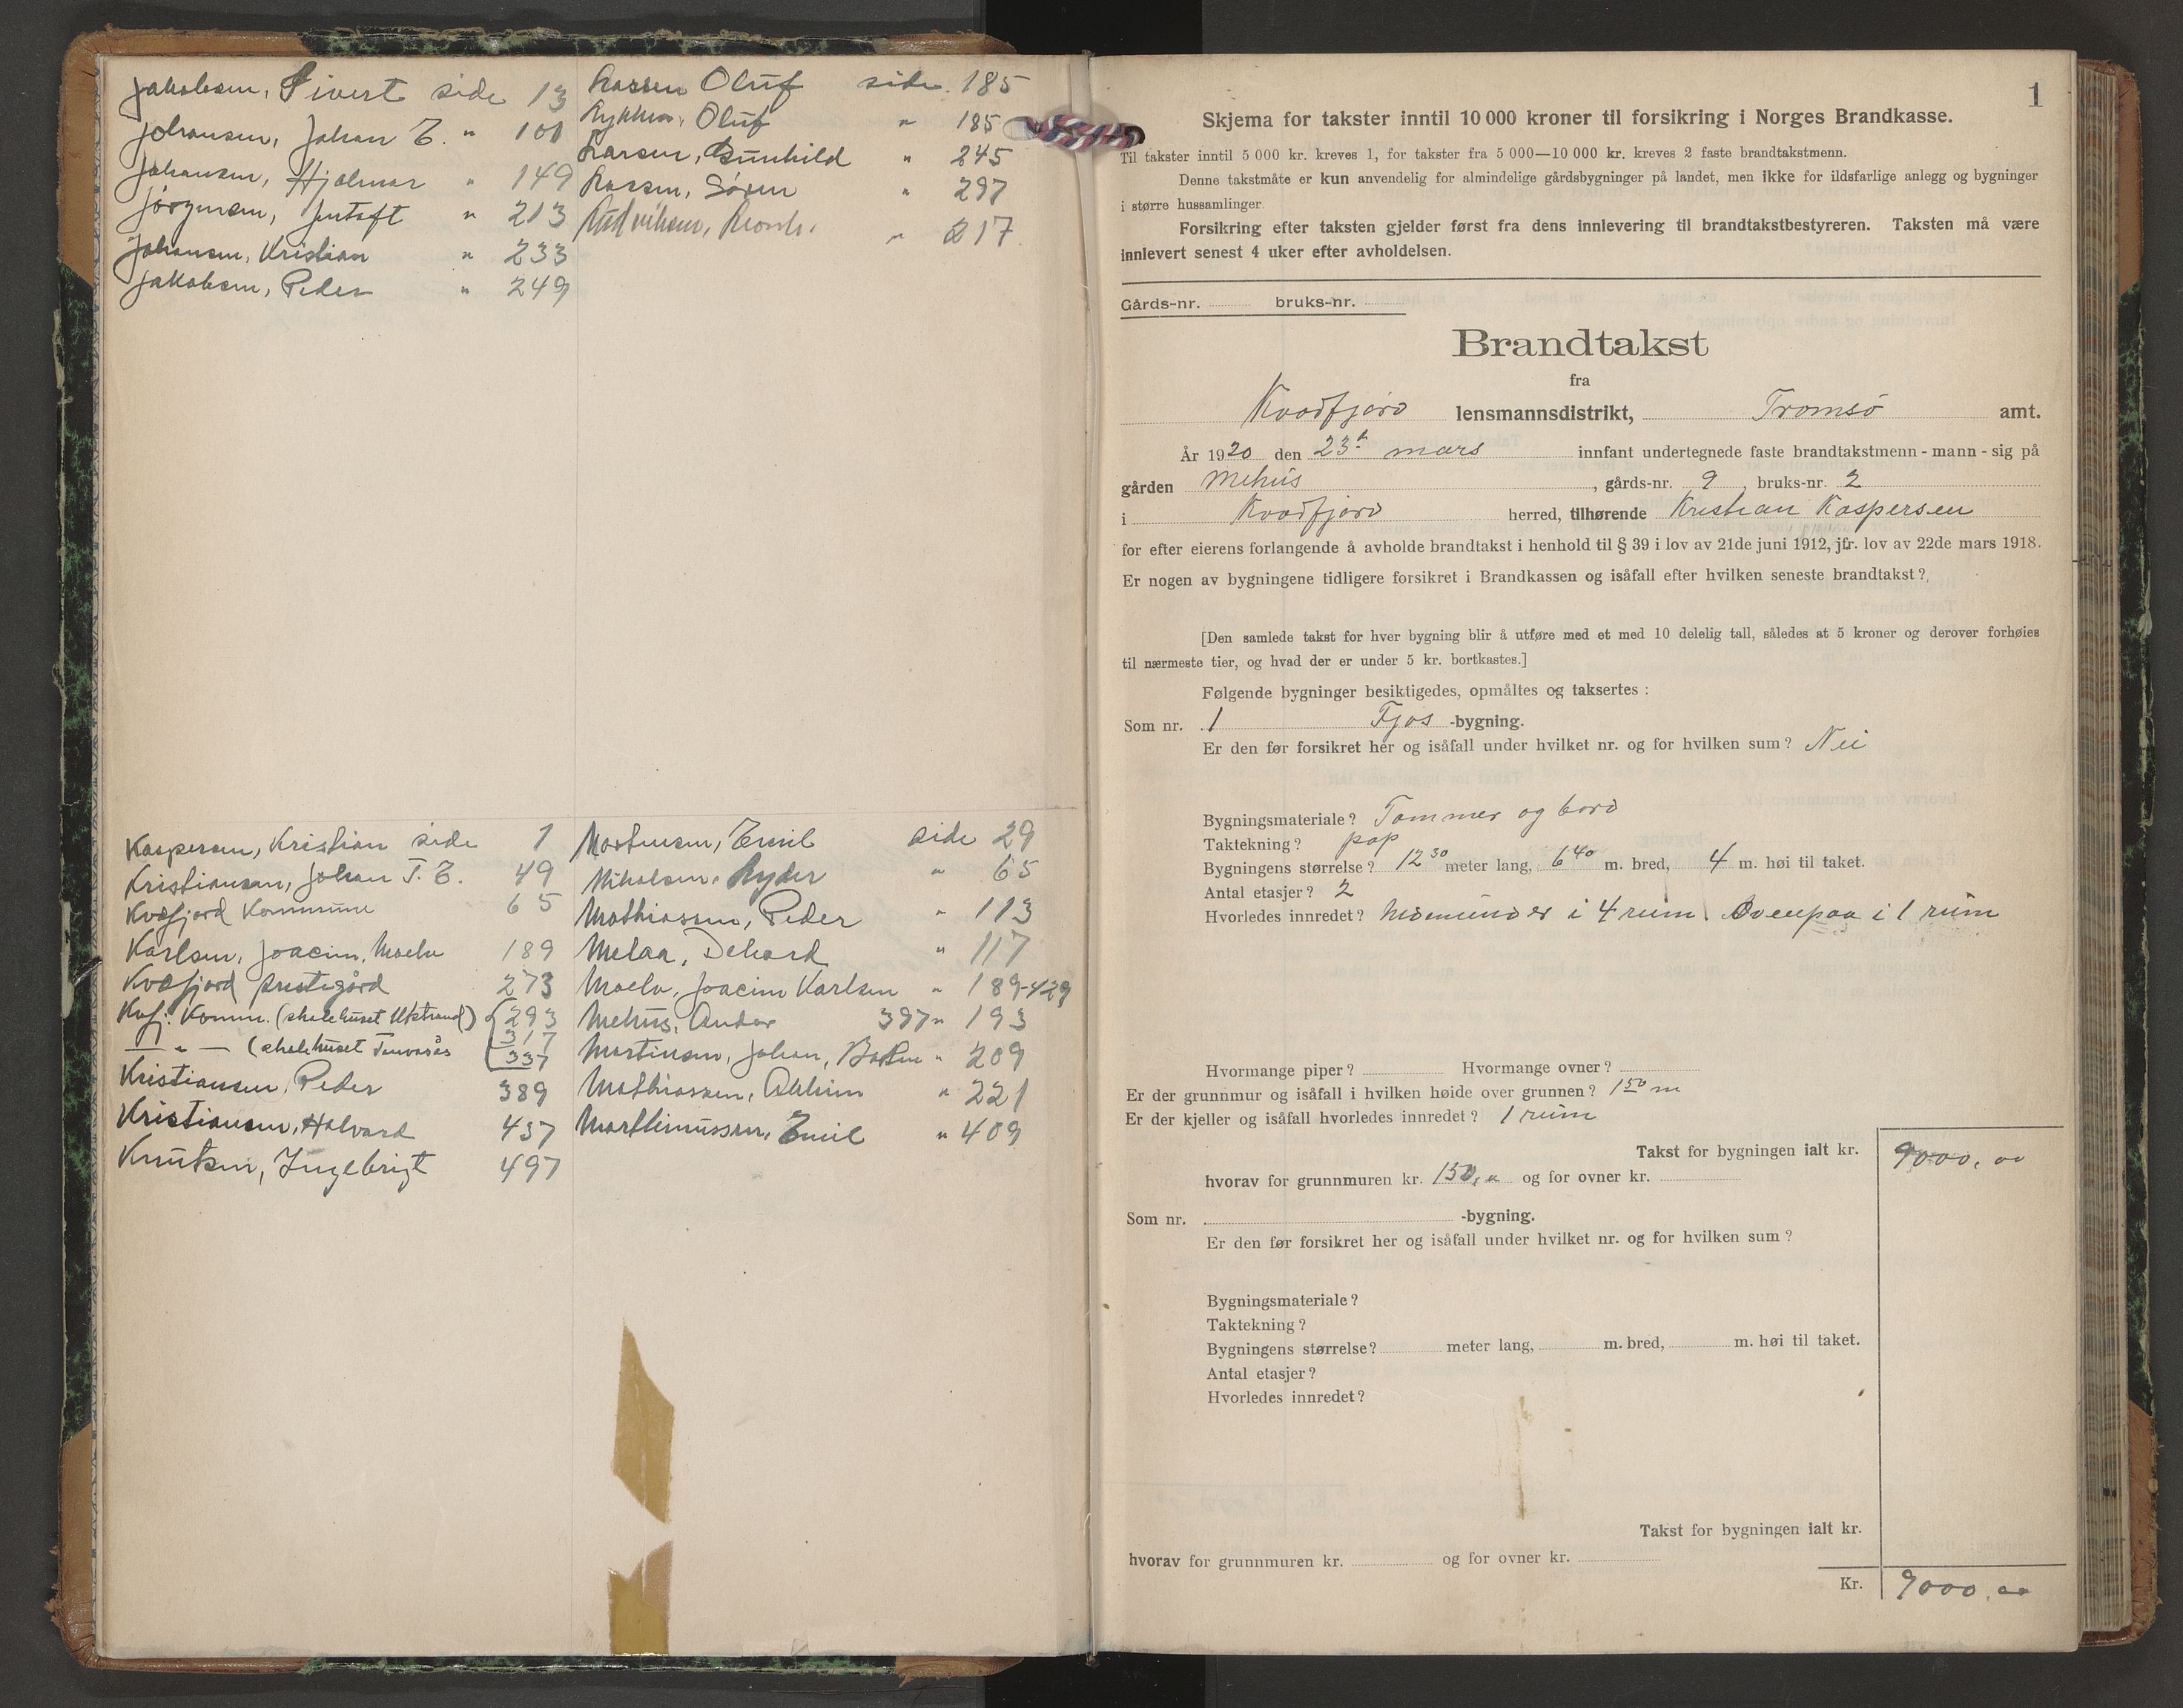 Jakobsen, Sivert side 13
Johansen, Johan E. " 101
Johansen, Hjalmar " 149
Jørgensen, Jentoft " 213
Johansen, Kristian " 233
Jakobsen, Peder " 249
Lassen Oluf side 185
Lykken, Oluf " 185
Larsen, Gunhild " 245
Lassen, Søren " 297
" 217
Kaspersen, Kristian side 1
Kristiansen, Johan J. E. 49
Kvæfjord Kommune 65
Karlsen, Joacim, Moelv 189
Kvæfjord prestegård 273
Kvfj. Komm. (skolehuset Utstrand) 293
317
— " — (skolehuset 337
Kristiansen, Peder 389
Kristiansen, Halvard 437
Knutsen, Ingebrigt 497
Mortensen, Emil side 29
Mikalsen, Ryder " 65
Mathiassen, Peder " 113
Melaa, Dehard " 117
Moelv, Joacim Karlsen " 189-429
Mehus, Andor 397 " 193
Martinsen, Johan, " 209
Mathiassen, " 221
Marthinussen, Emil " 409
1
Skjema for takster inntil 10 000 kroner til forsikring i Norges Brandkasse.
Til takster inntil 5 000 kr. kreves 1, for takster fra 5 000—10 000 kr. kreves 2 faste brandtakstmenn.
Denne takstmåte er kun anvendelig for almindelige gårdsbygninger på landet, men ikke for ildsfarlige anlegg og bygninger
i større hussamlinger.
Forsikring efter taksten gjelder først fra dens innlevering til brandtakstbestyreren. Taksten må være
innlevert senest 4 uker efter avholdelsen.
Gårds-nr. bruks-nr.
Brandtakst
fra
Kvædfjord lensmannsdistrikt, Tromsø amt.
År 1920 den 23de mars innfant undertegnede faste brandtakstmenn - mann - sig på
gården Mehus , gårds-nr. 9 , bruks-nr. 2
i Kvædfjord herred, tilhørende Kristian Kaspersen
for efter eierens forlangende å avholde brandtakst i henhold til § 39 i lov av 21de juni 1912, jfr. lov av 22de mars 1918.
Er nogen av bygningene tidligere forsikret i Brandkassen og isåfall efter hvilken seneste brandtakst?
[Den samlede takst for hver bygning blir å utføre med et med 10 delelig tall, således at 5 kroner og derover forhøies
til nærmeste tier, og hvad der er under 5 kr. bortkastes.]
Følgende bygninger besiktigedes, opmåltes og taksertes :
Som nr. 1 Fjøs -bygning.
Er den før forsikret her og isåfall under hvilket nr. og for hvilken sum? Nei
Bygningsmateriale? Tømmer og bord
Taktekning? pap
Bygningens størrelse? 12 30 meter lang, 6 40 m. bred, 4 m. høi til taket.
Antal etasjer? 2
Hvorledes innredet? Nedenunder i 4 rum. Ovenpaa i 1 rum
Hvormange piper? Hvormange ovner?
Er der grunnmur og isåfall i hvilken høide over grunnen? 1 50 m
Er der kjeller og isåfall hvorledes innredet? 1 rum
Takst for bygningen ialt kr. 9000,00
hvorav for grunnmuren kr. 150,00 og for ovner kr.
Som nr. -bygning.
Er den før forsikret her og isåfall under hvilket nr. og for hvilken sum?
Bygningsmateriale?
Taktekning?
Bygningens størrelse? meter lang, m. bred, m. høi til taket.
Antal etasjer?
Hvorledes innredet?
Takst for bygningen ialt kr.
hvorav for grunnmuren kr. og for ovner kr.
Kr. 9000,00